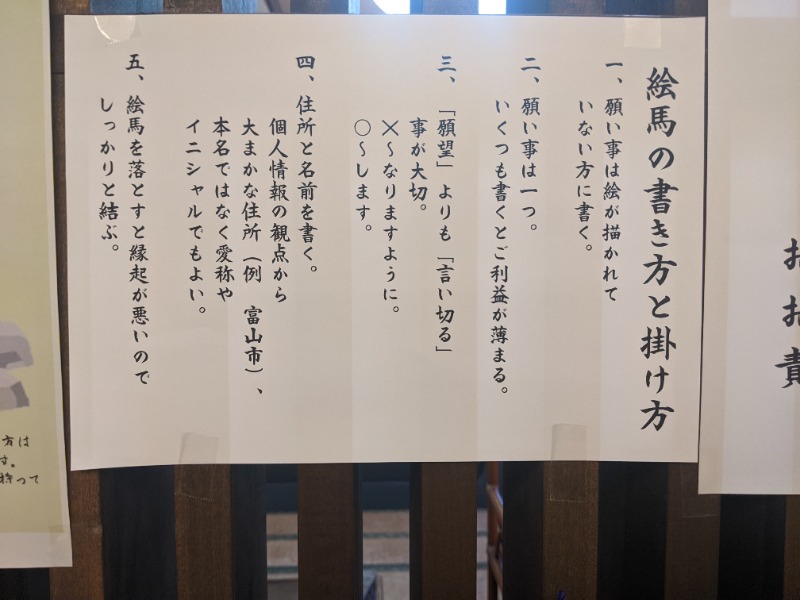 絵馬の書き方と掛け方
一、願い事は絵が描かれて
いない方に書く。
二、願い事は一つ。
いくつも書くとご利益が薄まる。
三、「願望」よりも「言い切る」
事が大切。
✕～なりますように。
○～します。
四、住所と名前を書く。
個人情報の観点から
大まかな住所（例　富山市）、
本名ではなく愛称や
イニシャルでもよい。
五、絵馬を落とすと縁起が悪いので
しっかりと結ぶ。
方は
す。
持って